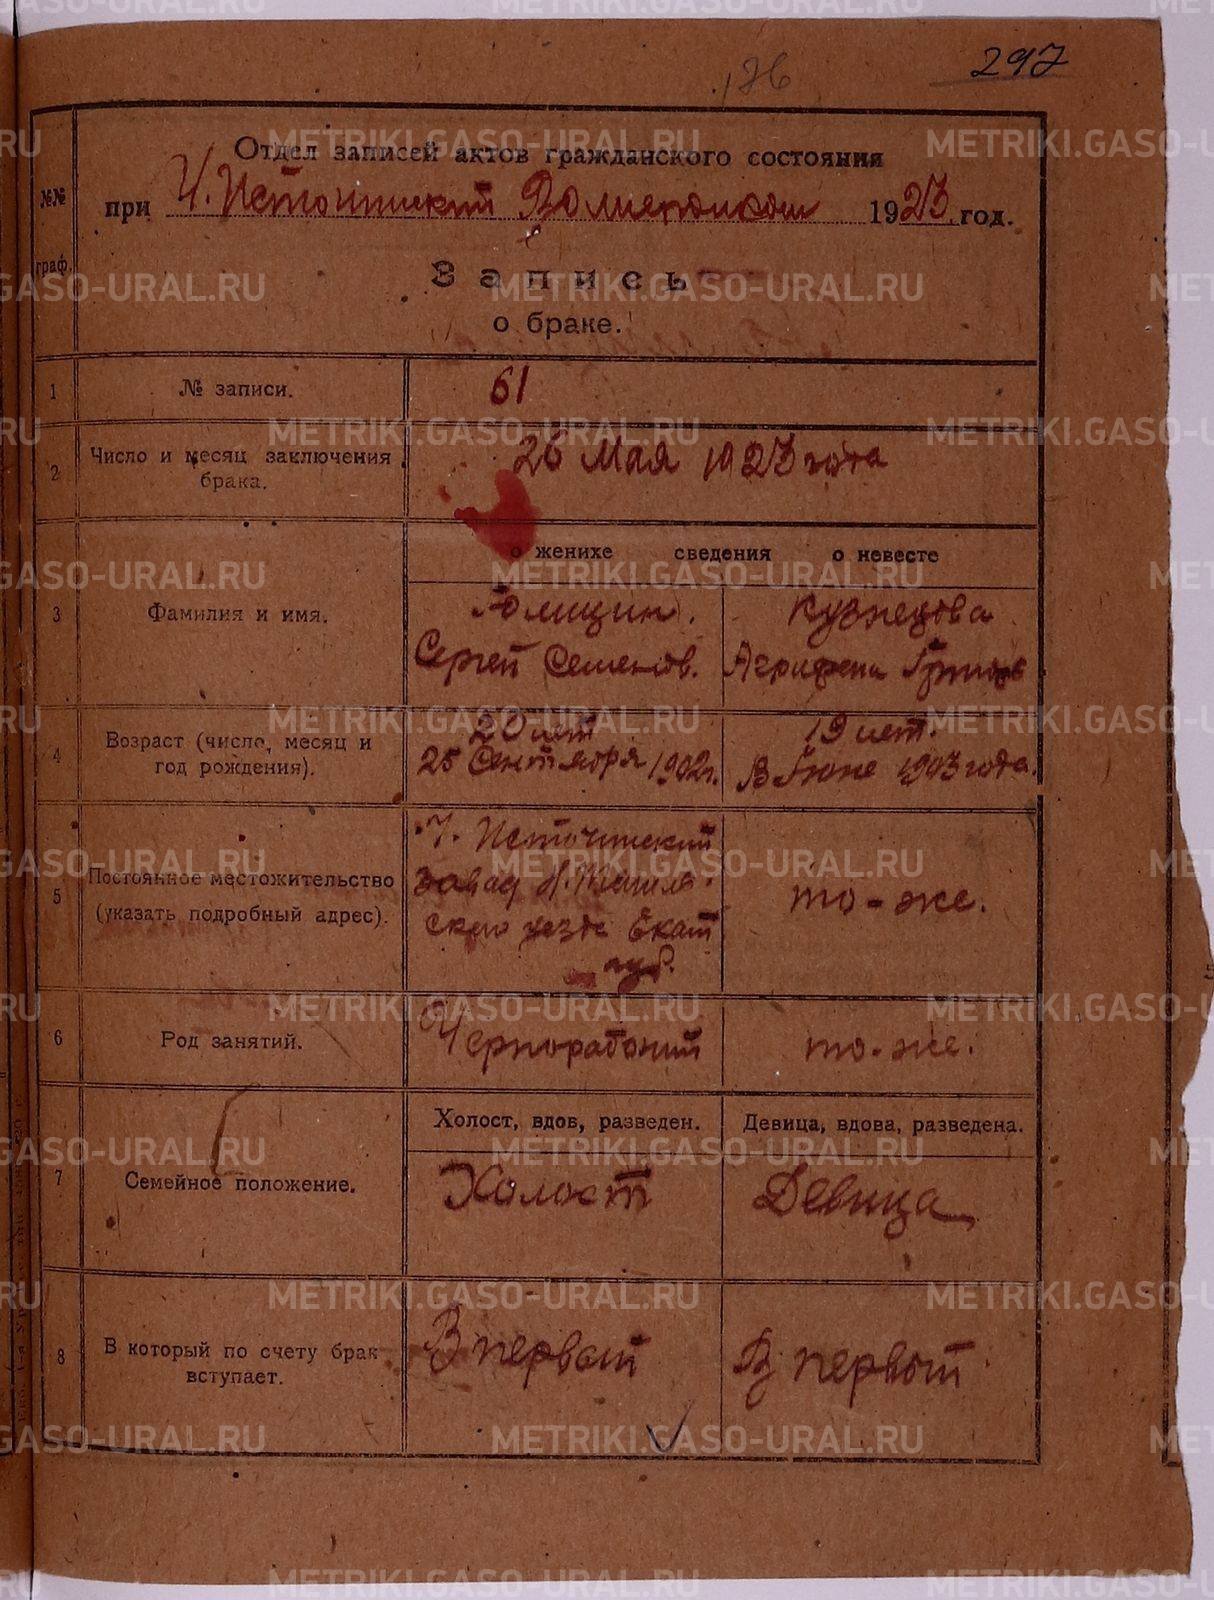 297
176
Отдел записей актов гражданского состояния
при Ч. Источинский Волисполком 1923 год.
№№
граф.
Запись
о браке.
1 № записи. 61
2 Число и месяц заключения брака. 26 Мая 1923 года
о женихе сведения о невесте
3 Фамилия и имя.
Сергей Семенов.
Кузнецова
Агрифена
4 Возраст (число, месяц и
год рождения).
20 лет
25 Сентября 1902 г.
19 лет.
В Июне 1903 года.
5 Постоянное местожительство
(указать подробный адрес).
Ч. Источинский
завод Н. Тагиль
ского уезда Екат
губ.
то-же.
6 Род занятий. Чернорабочий то-же.
Холост, вдов, разведен. Девица, вдова, разведена.
7 Семейное положение. Холост Девица
8 В который по счету брак
вступает.
В первый В первый
METRIKI.GASO-URAL.RU